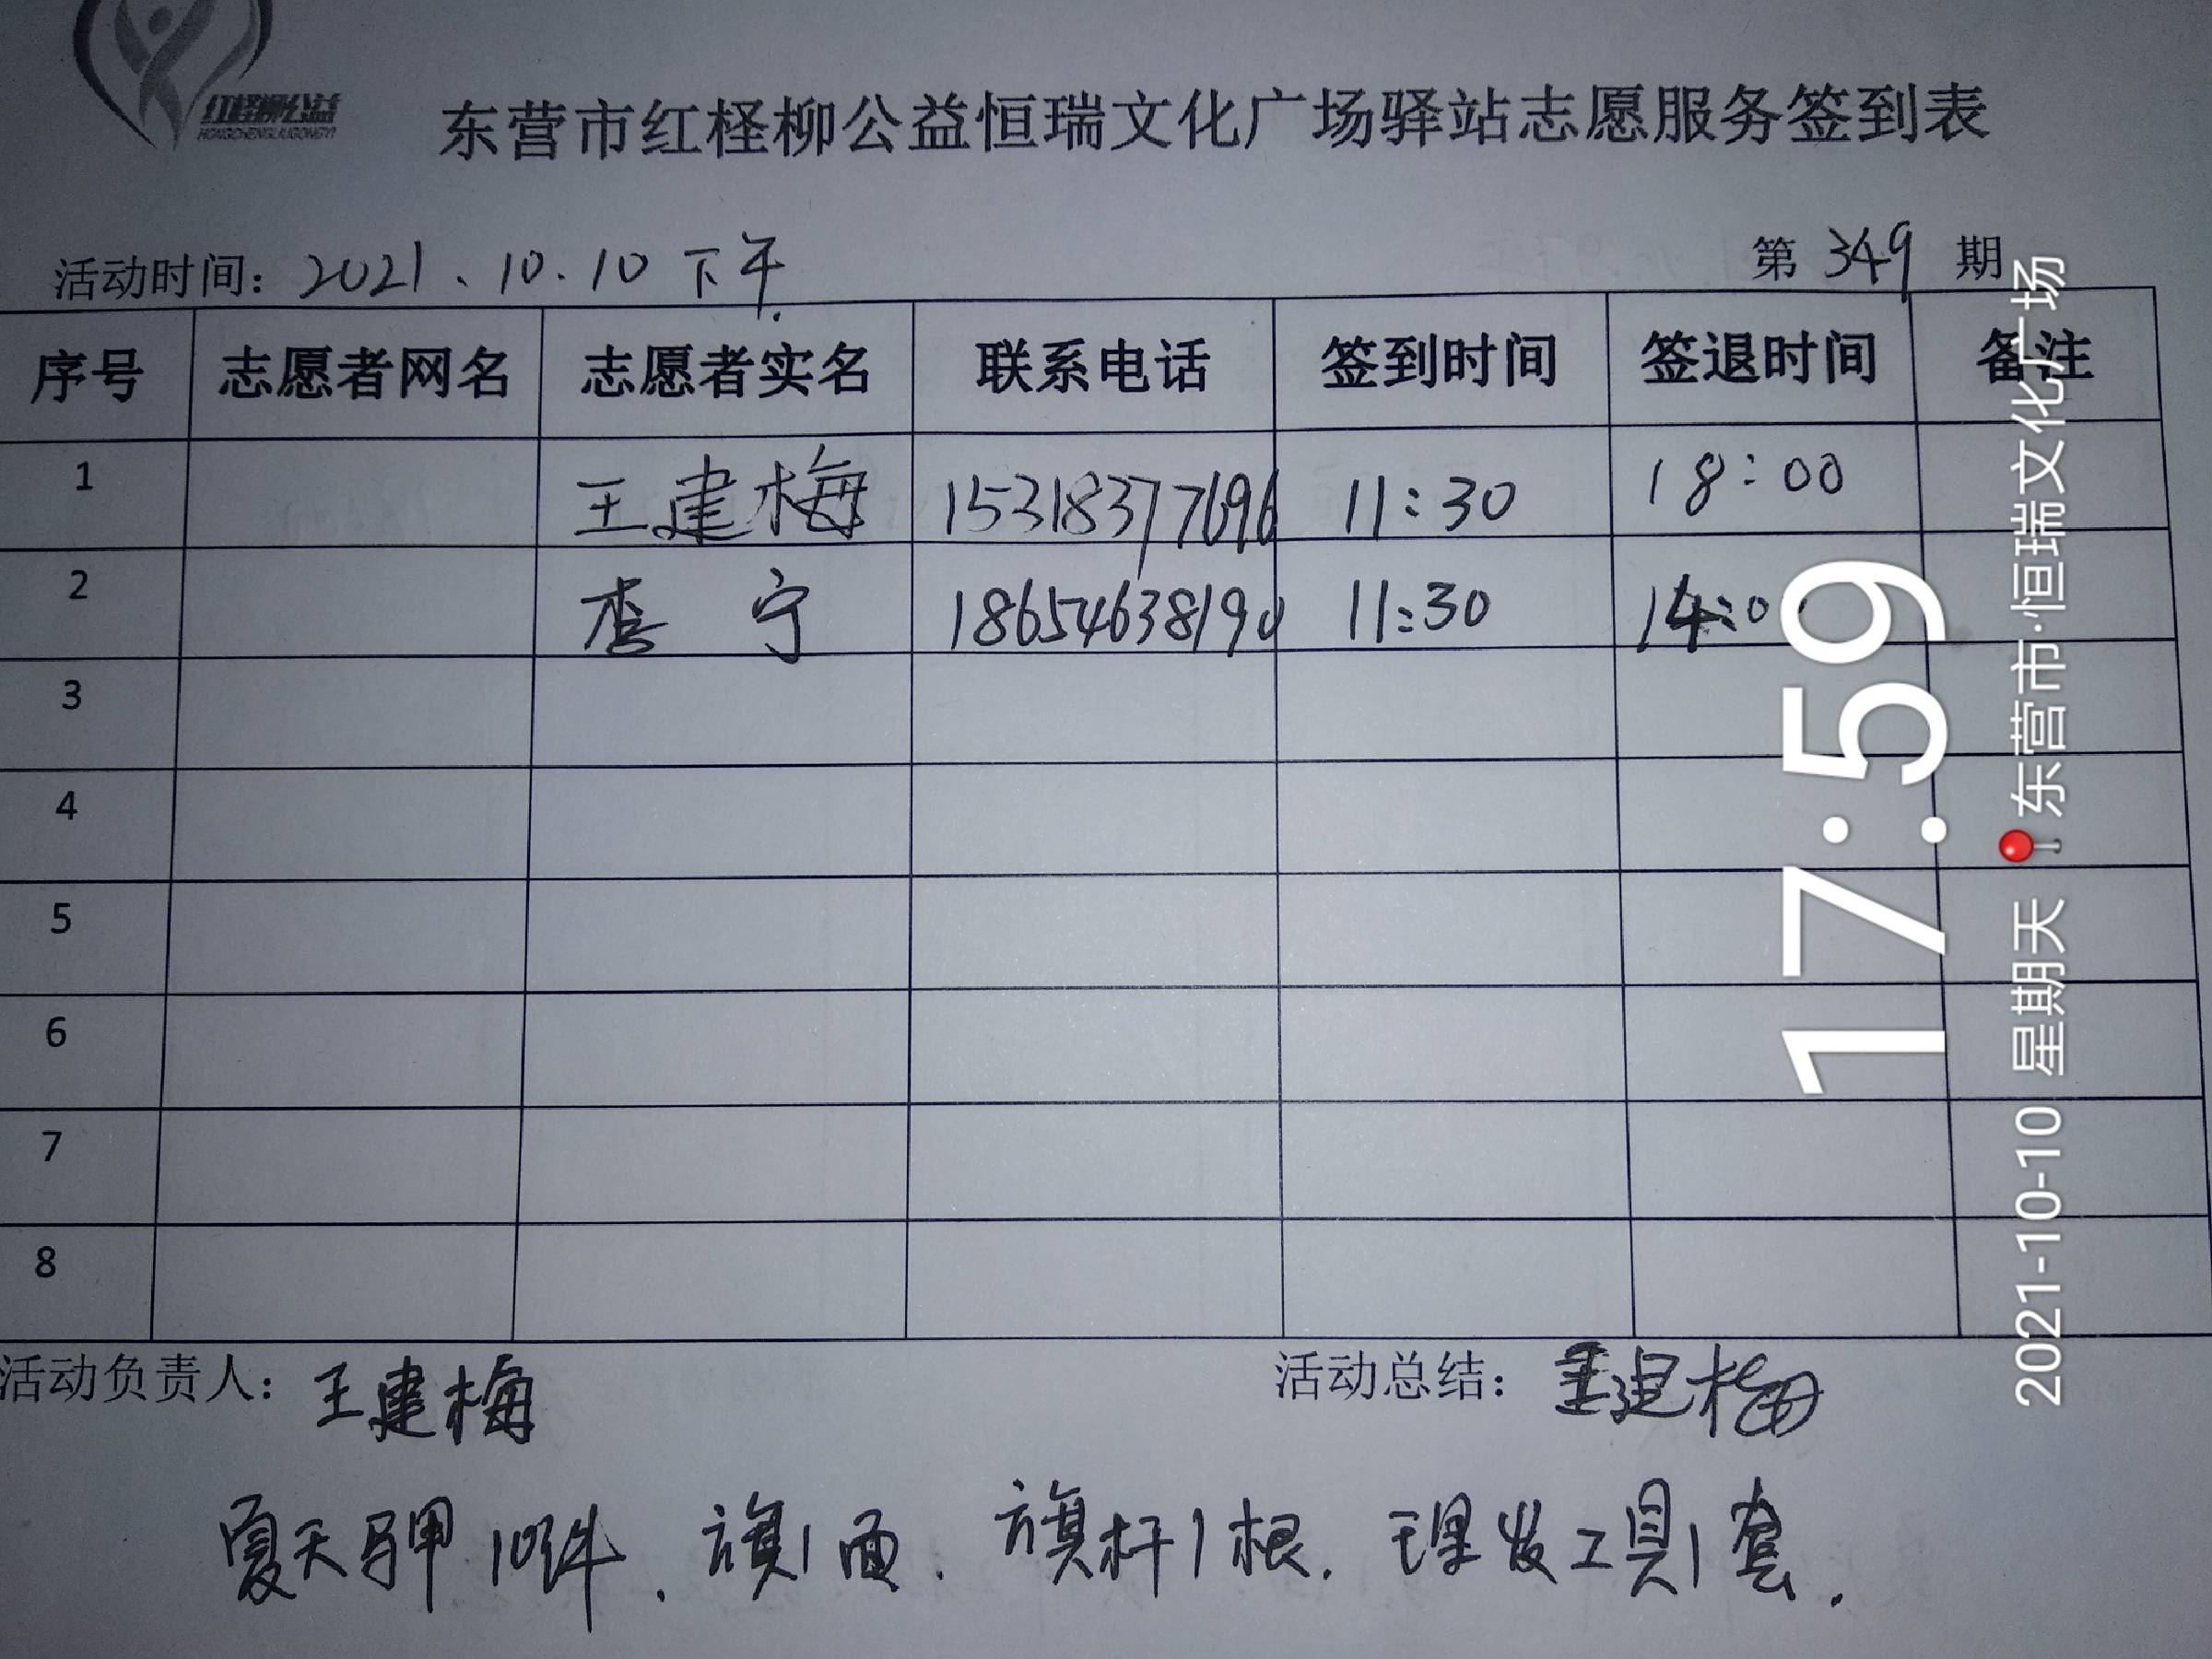 红柽柳公益
HONGCHENGLIUGONGYI
东营市红柽柳公益恒瑞文化广场驿站志愿服务签到表
活动时间：2021、10.10下午. 第349期
序号 志愿者网名 志愿者实名 联系电话 签到时间 签退时间 备注
1 王建梅 15318377696 11:30 18:00
2 李宁 18654638190 11:30 14:00
3
4
5
6
7
8
活动负责人：王建梅 活动总结：王建梅
夏天马甲10件、旗1面、旗杆1根.理发工具1套.
17:59
2021-10-10 星期天 东营市·恒瑞文化广场